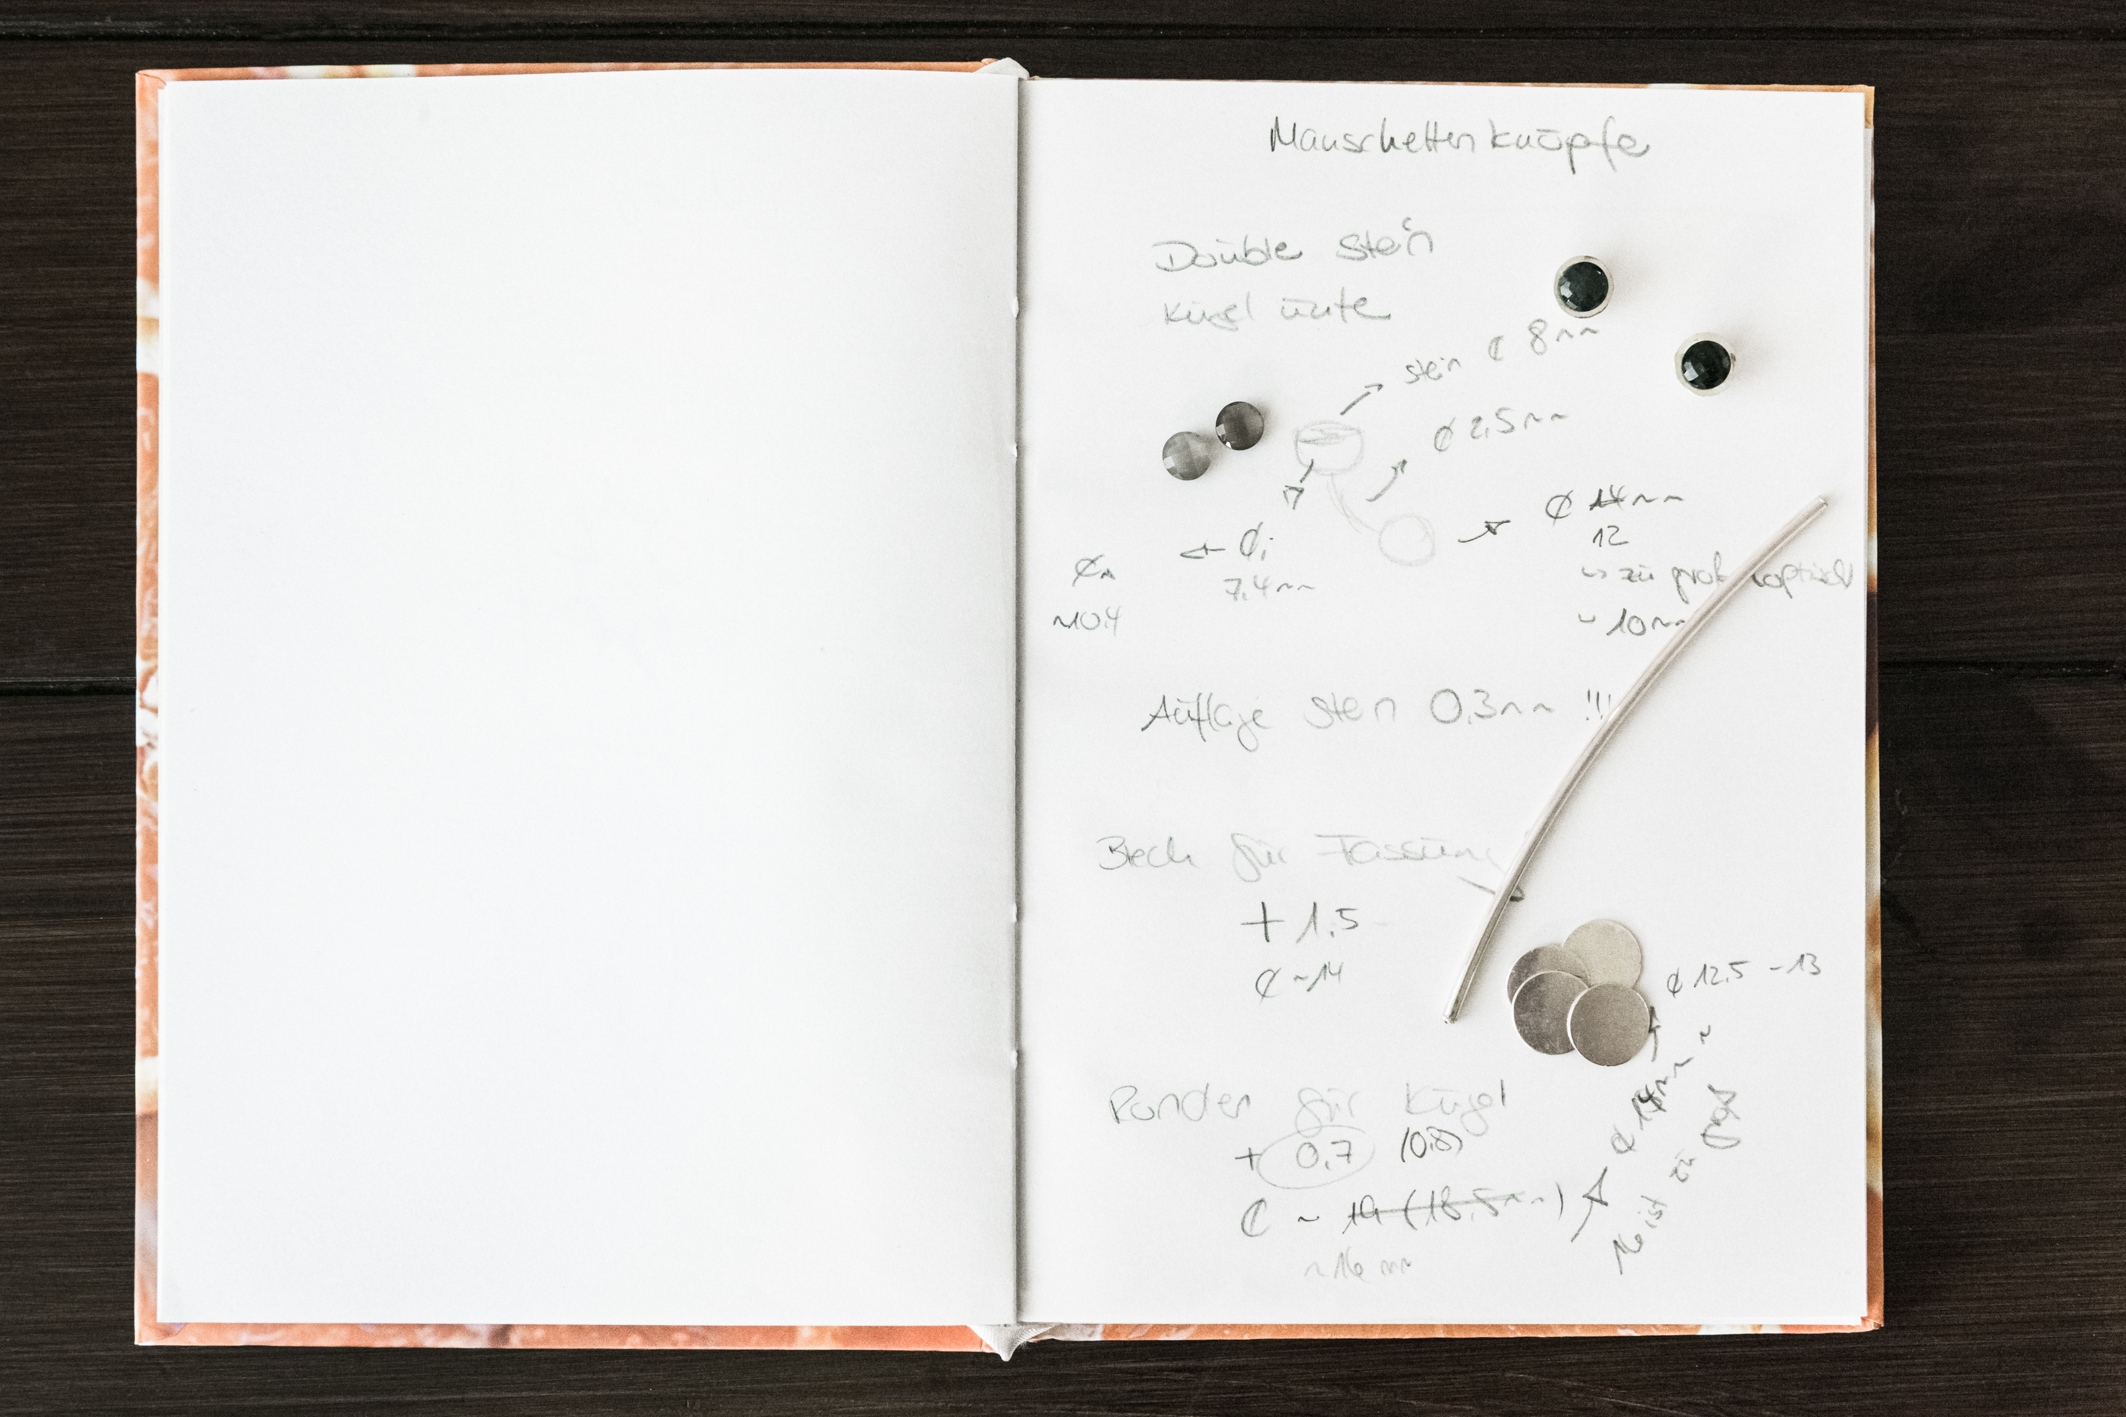 Manschettenknöpfe
Double Stein
Kugel unte
Stein ⌀ 8mm
⌀ 2,5mm
⌀ 14mm
12
⌀i
7,4mm
⌀A
~10,4
↳ zu groß optisch
~ 10mm
Auflage Stein 0,3mm !!!
Blech für Fassung
+ 1,5
⌀ ~14
⌀ 12,5 - 13
Ronden für Kugel
+ 0,7 (0,8)
⌀ ~ 19 (18,5mm)
~16 mm
⌀ 14mm
16 ist zu groß